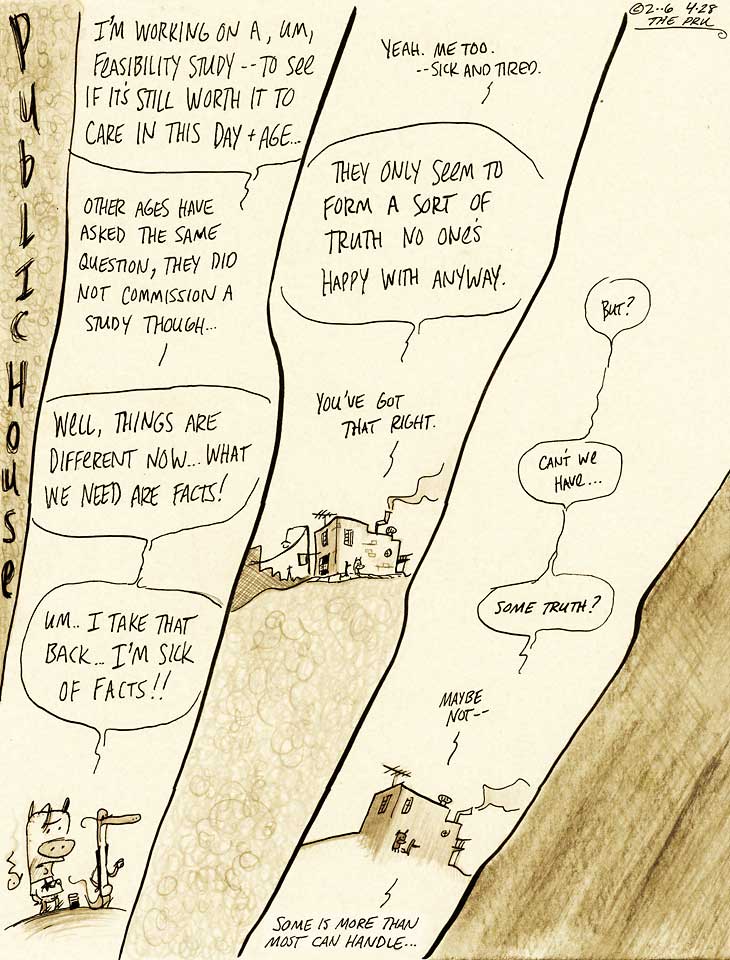 Public House
I'M WORKING ON A, UM,
FEASIBILITY STUDY -- TO SEE
IF IT'S STILL WORTH IT TO
CARE IN THIS DAY + AGE...
OTHER AGES HAVE
ASKED THE SAME
QUESTION, THEY DID
NOT COMMISSION A
STUDY THOUGH...
WELL, THINGS ARE
DIFFERENT NOW... WHAT
WE NEED ARE FACTS!
UM.. I TAKE THAT
BACK... I'M SICK
OF FACTS!!
YEAH. ME TOO.
--SICK AND TIRED.
THEY ONLY SEEM TO
FORM A SORT OF
TRUTH NO ONE'S
HAPPY WITH ANYWAY.
YOU'VE GOT
THAT RIGHT.
©2..6 4.28
THE PRU
BUT?
CAN'T WE
HAVE...
SOME TRUTH?
MAYBE
NOT--
SOME IS MORE THAN
MOST CAN HANDLE...